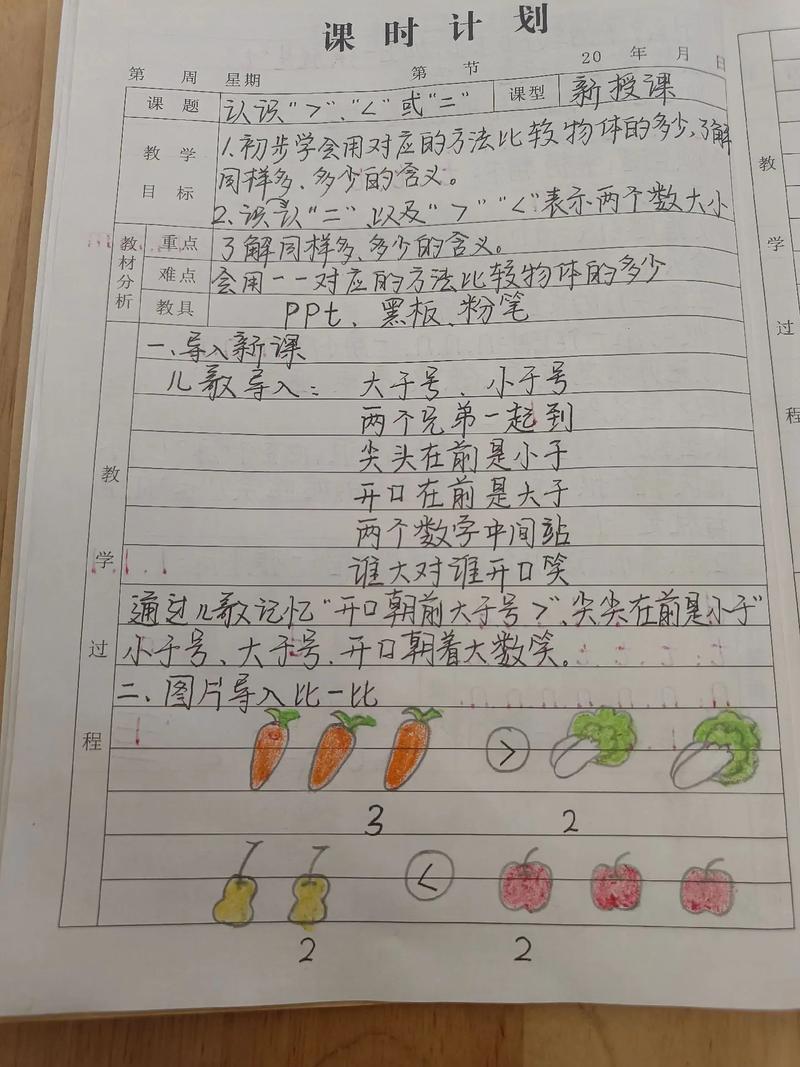 课时计划
第 周 星期 第 节 20 年 月 日
课题 认识">"、"<"或"=" 课型 新授课
教学目标 1.初步学会用对应的方法比较物体的多少,了解
同样多、多少的含义。
2.认识"="以及">""<"表示两个数大小
教材分析 重点 了解同样多、多少的含义。
难点 会用一一对应的方法比较物体的多少
教具 PPt、黑板、粉笔
教学过程
一、导入新课
儿歌导入: 大于号、小于号
两个兄弟一起到
尖头在前是小于
开口在前是大于
两个数字中间站
谁大对谁开口笑
通过儿歌记忆"开口朝前大于号>"、尖尖在前是小于"
小于号、大于号、开口朝着大数笑。
二、图片导入比一比
>
3 2
<
2 2
教学过程